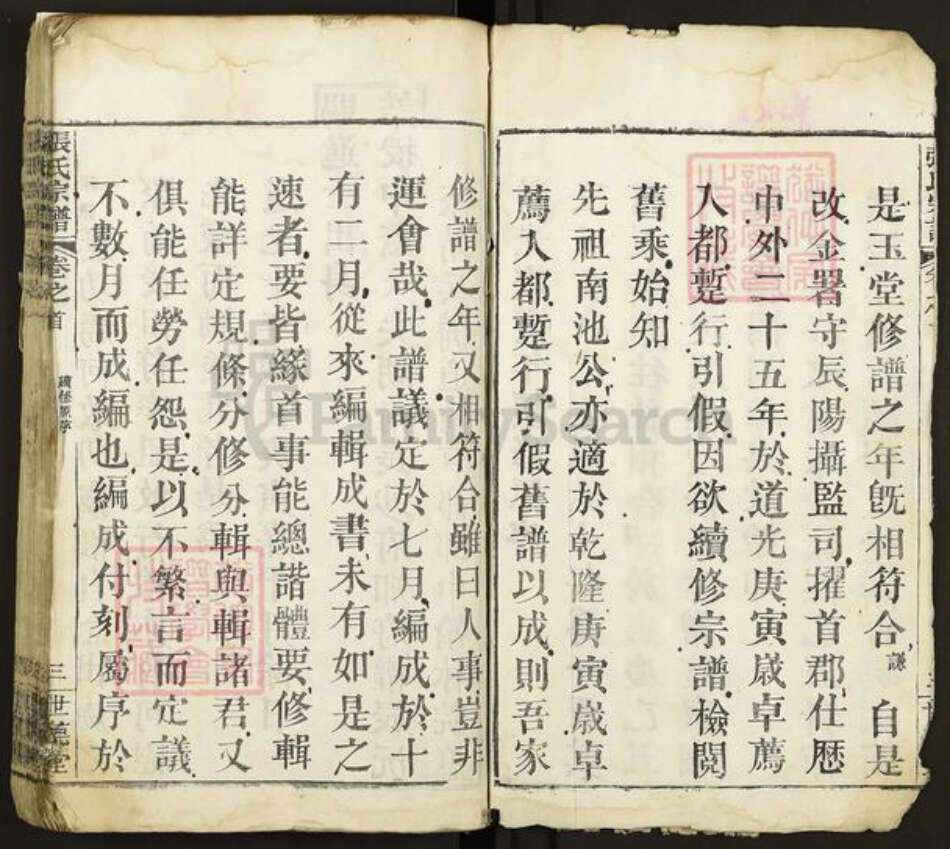 是玉堂修譜之年旣相符合謙自是
改金署守辰陽攝監司擢首郡仕歷
中外二十五年於道光庚寅歲卓薦
入都蹔行引假因欲續修宗譜檢閱
舊乘始知
先祖南池公亦適於乾隆庚寅歲卓
薦入都蹔行引假舊譜以成則吾家
修譜之年又相符合雖曰人事豈非
運會哉此譜議定於七月編成於十
有二月從來編輯成書未有如是之
速者要皆緣首事能總諧體要修輯
能詳定規條分修分輯與輯諸君又
俱能任勞任怨是以不繁言而定議
不數月而成編也編成付刻屬序於
張氏宗譜
卷之首
三
世
堂
FamilySearch